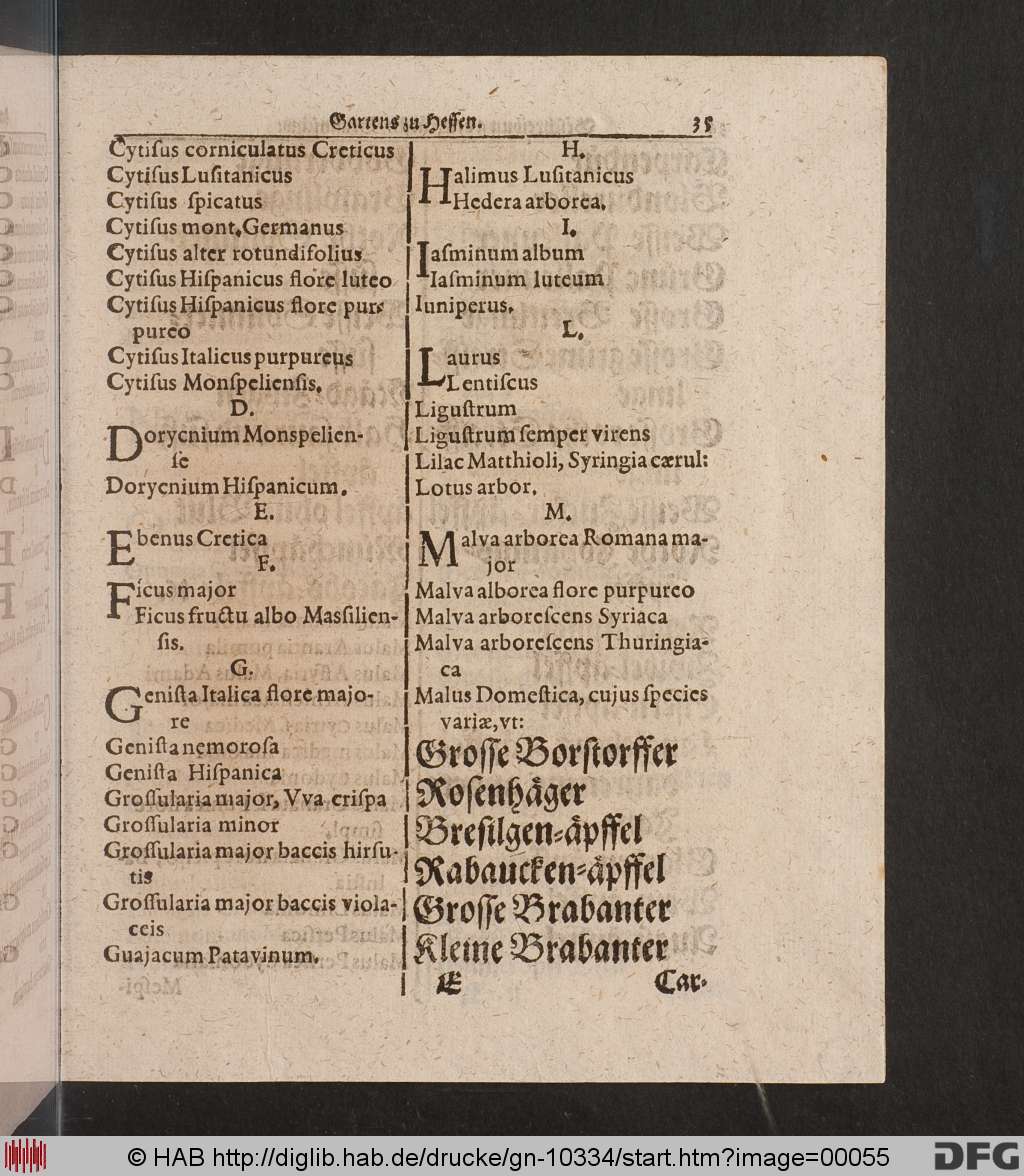 Gartens zu Hessen. 35
Cytiſus corniculatus Creticus
Cytiſus Luſitanicus
Cytiſus ſpicatus
Cytiſus mont. Germanus
Cytiſus alter rotundifolius
Cytiſus Hiſpanicus flore luteo
Cytiſus Hiſpanicus flore pur-
pureo
Cytiſus Italicus purpureus
Cytiſus Monſpelienſis.
D.
Dorycnium Monspelien-
ſe
Dorycnium Hiſpanicum.
E.
Ebenus Cretica
F.
Ficus major
Ficus fructu albo Masſilien-
ſis.
G.
Geniſta Italica flore majo-
re
Geniſta nemoroſa
Geniſta Hiſpanica
Groſſularia major, Vva criſpa
Groſſularia minor
Groſſularia major baccis hirſu-
tis
Groſſularia major baccis viola-
ceis
Guajacum Patavinum.
H.
Halimus Luſitanicus
Hedera arborea.
I.
Iaſminum album
Iaſminum luteum
Iuniperus.
L.
Laurus
Lentiſcus
Liguſtrum
Liguſtrum ſemper virens
Lilac Matthioli, Syringia cærul:
Lotus arbor.
M.
Malva arborea Romana ma-
jor
Malva alborea flore purpureo
Malva arboreſcens Syriaca
Malva arboreſcens Thuringia-
ca
Malus Domeſtica, cujus ſpecies
variæ, vt:
Groſſe Borſtorffer
Roſenhäger
Breſilgen-äpffel
Rabaucken-äpffel
Groſſe Brabanter
Kleine Brabanter
E Car-
© HAB http://diglib.hab.de/drucke/gn-10334/start.htm?image=00055
DFG